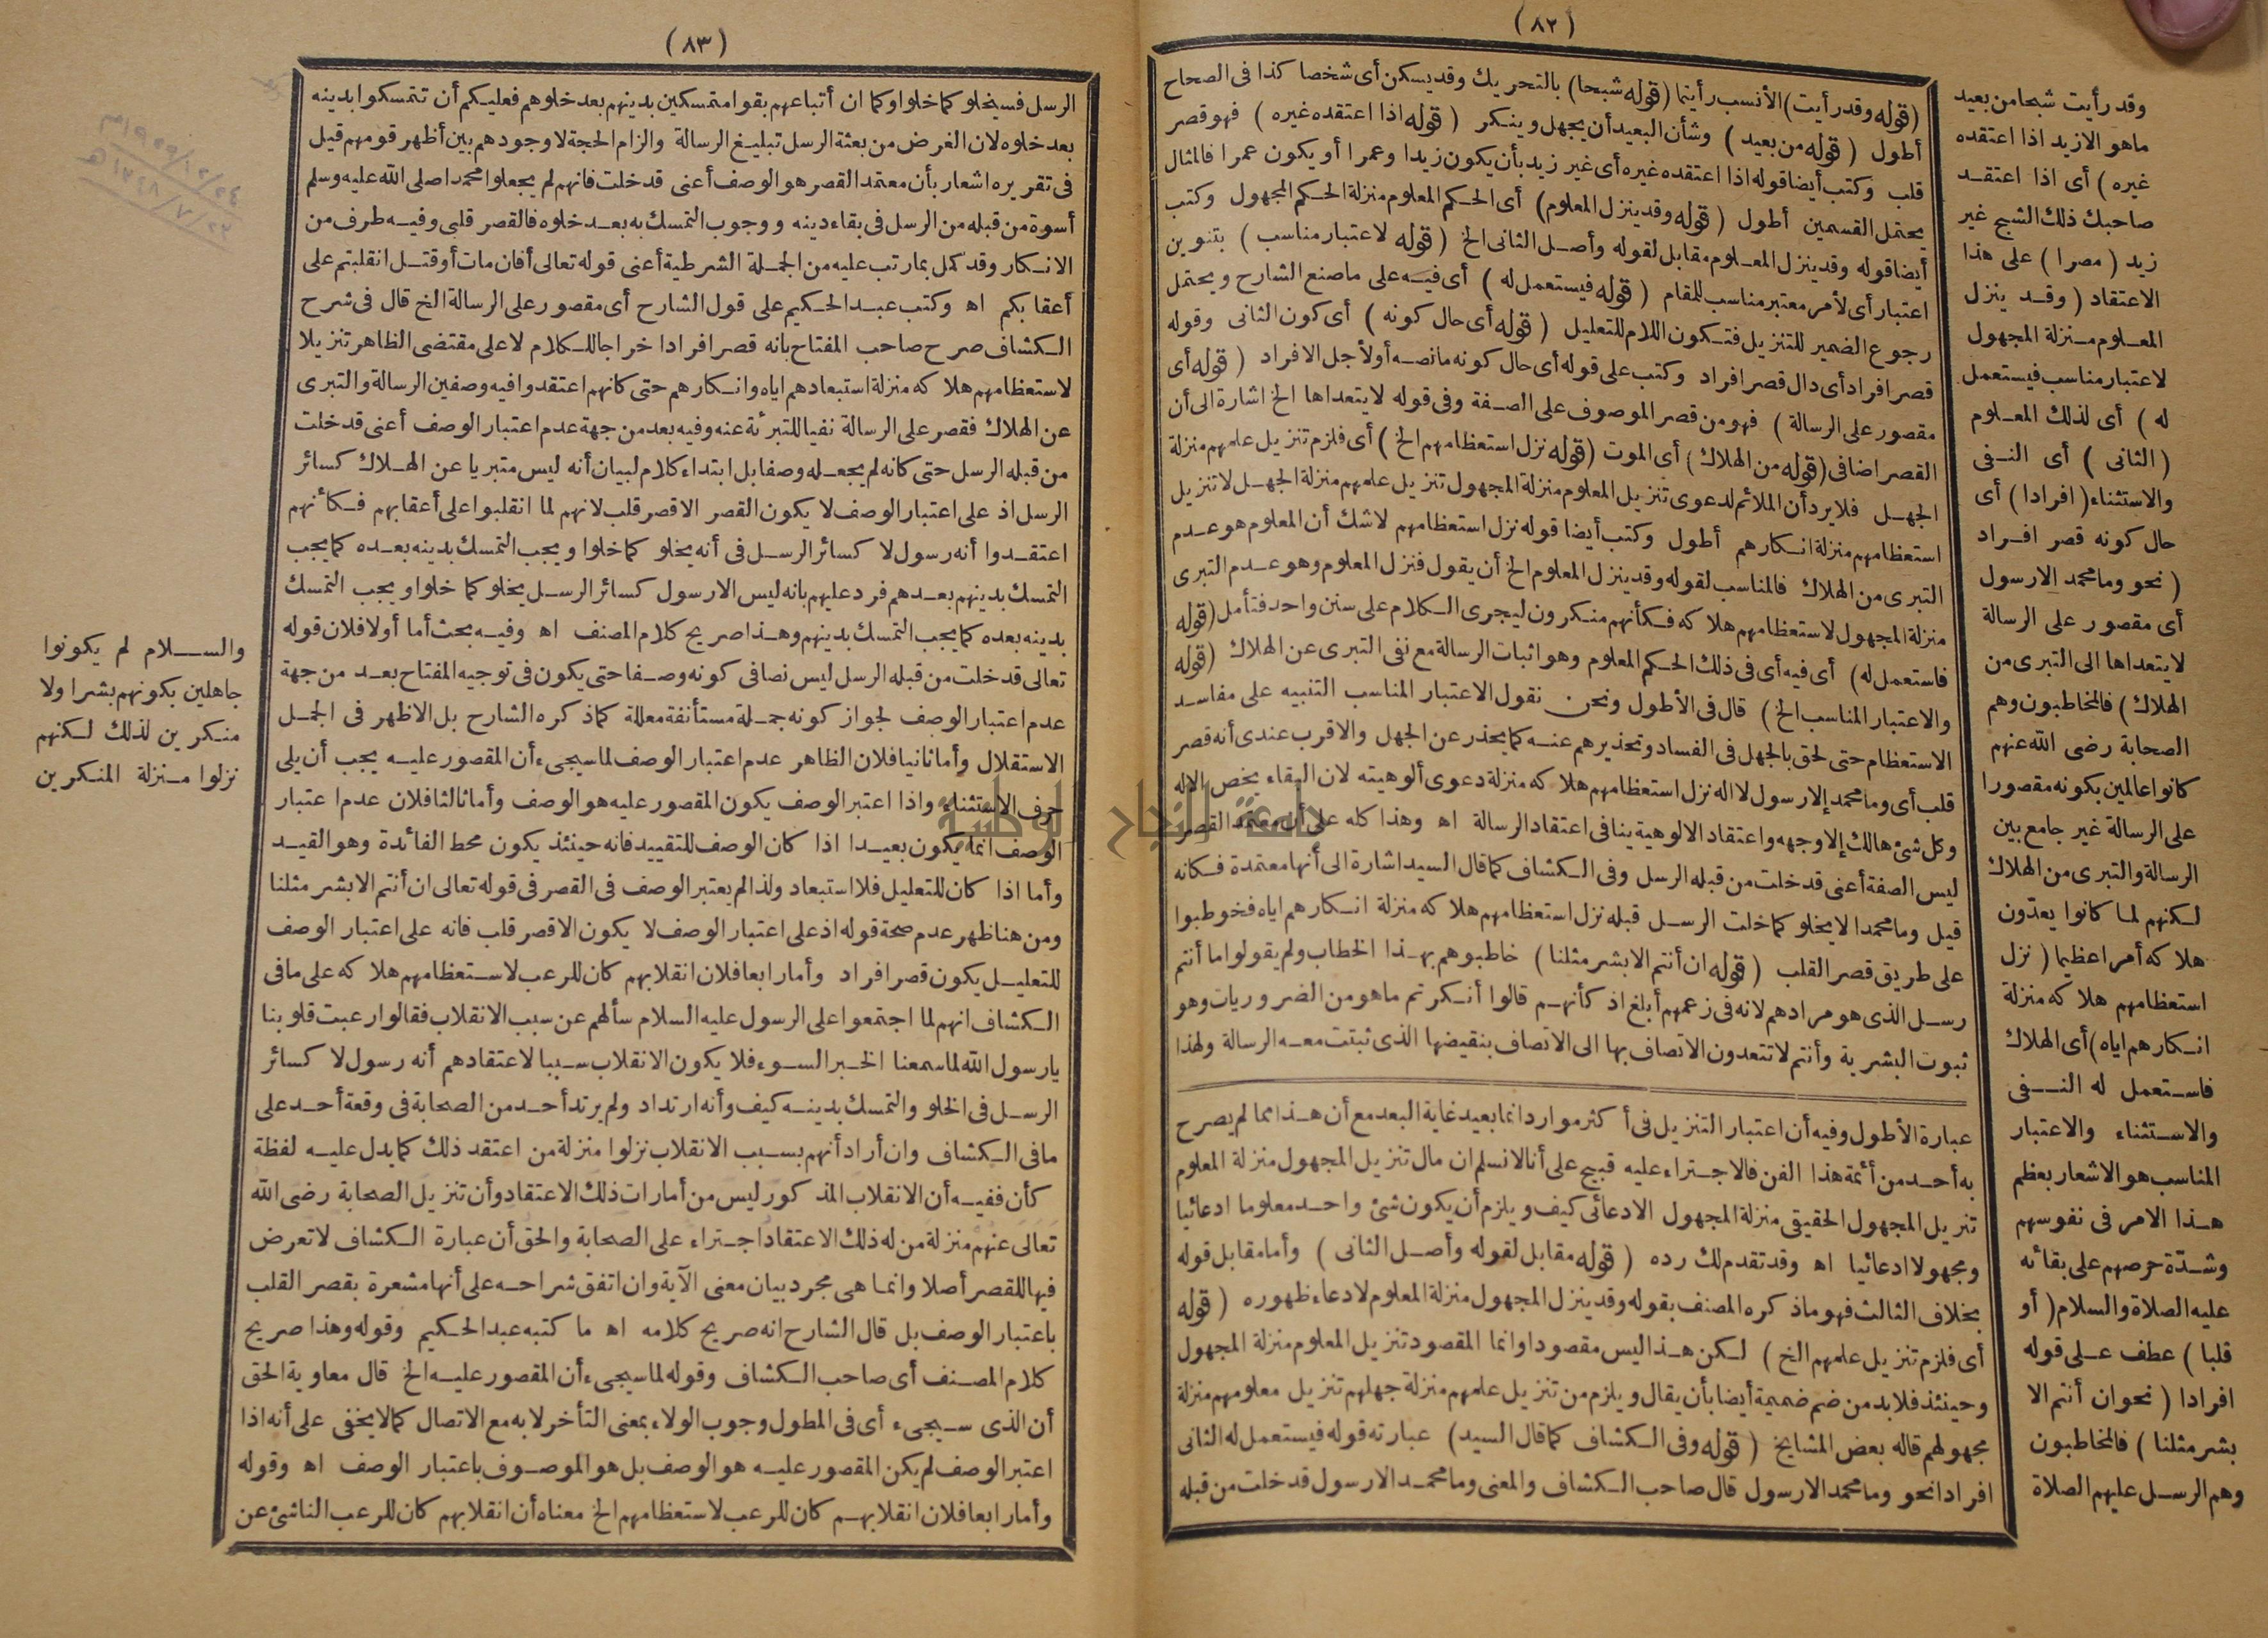 (٨٢)
وقد رأيت شبحا من بعيد
ما هو الا زيد اذا اعتقده
غيره) أى اذا اعتقد
صاحبك ذلك الشبح غير
زيد (مصرا) على هذا
الاعتقاد (وقد ينزل
المعلوم منزلة المجهول
لاعتبار مناسب فيستعمل
له) أى لذلك المعلوم
(الثانى) أى النفى
والاستثناء (افرادا) أى
حال كونه قصر افراد
(نحو وما محمد الا رسول
أى مقصور على الرسالة
لا يتعداها الى التبرى من
الهلاك) فالمخاطبون وهم
الصحابة رضى الله عنهم
كانوا عالمين بكونه مقصورا
على الرسالة غير جامع بين
الرسالة والتبرى من الهلاك
لكنهم لما كانوا يعدّون
هلاكه أمرا عظيما (نزل
استعظامهم هلاكه منزلة
انكارهم اياه) أى الهلاك
فاستعمل له النفى
والاستثناء والاعتبار
المناسب هو الاشعار بعظم
هذا الامر فى نفوسهم
وشدّة حرصهم على بقائه
عليه الصلاة والسلام (أو
قلبا) عطف على قوله
افرادا (نحو ان أنتم الا
بشر مثلنا) فالمخاطبون
وهم الرسل عليهم الصلاة
(قوله وقد رأيت) الأنسب رأيتما (قوله شبحا) بالتحريك وقد يسكن أى شخصا كذا فى الصحاح
أطول (قوله من بعيد) وشأن البعيد أن يجهل وينكر (قوله اذا اعتقده غيره) فهو قصر
قلب وكتب أيضا قوله اذا اعتقده غيره أى غير زيد بأن يكون زيدا وعمرا أو يكون عمرا فالمثال
يحتمل القسمين أطول (قوله وقد ينزل المعلوم) أى الحكم المعلوم منزلة الحكم المجهول وكتب
أيضا قوله وقد ينزل المعلوم مقابل لقوله وأصل الثانى الخ (قوله لاعتبار مناسب) بتنوين
اعتبار أى لأمر معتبر مناسب للمقام (قوله فيستعمل له) أى فيه على ما صنع الشارح ويحتمل
رجوع الضمير للتنزيل فتكون اللام للتعليل (قوله أى حال كونه) أى كون الثانى وقوله
قصر افراد أى دال قصر افراد وكتب على قوله أى حال كونه ما نصه أو لأجل الافراد (قوله أى
مقصور على الرسالة) فهو من قصر الموصوف على الصفة وفى قوله لا يتعداها الخ اشارة الى أن
القصر اضافى (قوله من الهلاك) أى الموت (قوله نزل استعظامهم الخ) أى فلزم تنزيل علمهم منزلة
الجهل فلا يرد أن الملائم لدعوى تنزيل المعلوم منزلة المجهول تنزيل علمهم منزلة الجهل لا تنزيل
استعظامهم منزلة انكارهم أطول وكتب أيضا قوله نزل استعظامهم لا شك أن المعلوم هو عدم
التبرى من الهلاك فالمناسب لقوله وقد ينزل المعلوم الخ أن يقول فنزل المعلوم وهو عدم التبرى
منزلة المجهول لاستعظامهم هلاكه فكأنهم منكرون ليجرى الكلام على سنن واحد فتأمل (قوله
فاستعمل له) أى فيه أى فى ذلك الحكم المعلوم وهو اثبات الرسالة مع نفى التبرى عن الهلاك (قوله
والاعتبار المناسب الخ) قال فى الأطول ونحن نقول الاعتبار المناسب التنبيه على مفاسد
الاستعظام حتى لحق بالجهل فى الفساد وتحذيرهم عنه كما يحذر عن الجهل والاقرب عندى أنه قصر
قلب أى وما محمد إلا رسول لا اله نزل استعظامهم هلاكه منزلة دعوى ألوهيته لان البقاء يخص الاله
وكل شئ هالك إلا وجهه واعتقاد الالوهية ينافى اعتقاد الرسالة اه وهذا كله على أن معتمد القصر
ليس الصفة أعنى قد خلت من قبله الرسل وفى الكشاف كما قال السيد اشارة الى أنها معتمدة فكانه
قيل وما محمد الا يخلو كما خلت الرسل قبله نزل استعظامهم هلاكه منزلة انكارهم اياه فخوطبوا
على طريق قصر القلب (قوله ان أنتم الا بشر مثلنا) خاطبوهم بهذا الخطاب ولم يقولوا ما أنتم
رسل الذى هو مرادهم لانه فى زعمهم أبلغ اذ كأنهم قالوا أنكرتم ما هو من الضروريات وهو
ثبوت البشرية وأنتم لا تتعدون الاتصاف بها الى الاتصاف بنقيضها الذى ثبتت معه الرسالة ولهذا
عبارة الأطول وفيه أن اعتبار التنزيل فى أكثر موارد انما بعيد غاية البعد مع أن هذا مما لم يصرح
به أحد من أئمة هذا الفن فالاجتراء عليه قبيح على أنا لا نسلم ان مآل تنزيل المجهول منزلة المعلوم
تنزيل المجهول الحقيقى منزلة المجهول الادعائى كيف ويلزم أن يكون شئ واحد معلوما ادعائيا
ومجهولا ادعائيا اه وقد تقدم لك رده (قوله مقابل لقوله وأصل الثانى) وأما مقابل قوله
بخلاف الثالث فهو ما ذكره المصنف بقوله وقد ينزل المجهول منزلة المعلوم لادعاء ظهوره (قوله
أى فلزم تنزيل علمهم الخ) لكن هذا ليس مقصودا وانما المقصود تنزيل المعلوم منزلة المجهول
وحينئذ فلا بد من ضم ضميمة أيضا بأن يقال ويلزم من تنزيل علمهم منزلة جهلهم تنزيل معلومهم منزلة
مجهولهم قاله بعض المشايخ (قوله وفى الكشاف كما قال السيد) عبارته قوله فيستعمل له الثانى
افرادا نحو وما محمد الا رسول قال صاحب الكشاف والمعنى وما محمد الا رسول قد خلت من قبله
(٨٣)
الرسل فسيخلو كما خلوا وكما ان أتباعهم بقوا متمسكين بدينهم بعد خلوهم فعليكم أن تتمسكوا بدينه
بعد خلوه لان الغرض من بعثة الرسل تبليغ الرسالة والزام الحجة لا وجودهم بين أظهر قومهم قيل
فى تقريره اشعار بأن معتمد القصر هو الوصف أعنى قد خلت فانهم لم يجعلوا محمدا صلى الله عليه وسلم
أسوة من قبله من الرسل فى بقاء دينه ووجوب التمسك به بعد خلوه فالقصر قلبى وفيه طرف من
الانكار وقد كمل بما رتب عليه من الجملة الشرطية أعنى قوله تعالى أفان مات أو قتل انقلبتم على
أعقابكم اه وكتب عبد الحكيم على قول الشارح أى مقصور على الرسالة الخ قال فى شرح
الكشاف صرح صاحب المفتاح بانه قصر افراد اخراجا للكلام لا على مقتضى الظاهر تنزيلا
لاستعظامهم هلاكه منزلة استبعادهم اياه وانكارهم حتى كانهم اعتقدوا فيه وصفين الرسالة والتبرى
عن الهلاك فقصر على الرسالة نفيا للتبرئة عنه وفيه بعد من جهة عدم اعتبار الوصف أعنى قد خلت
من قبله الرسل حتى كانه لم يجعله وصفا بل ابتداء كلام لبيان أنه ليس متبريا عن الهلاك كسائر
الرسل اذ على اعتبار الوصف لا يكون القصر الا قصر قلب لانهم لما انقلبوا على أعقابهم فكأنهم
اعتقدوا أنه رسول لا كسائر الرسل فى أنه يخلو كما خلوا ويجب التمسك بدينه بعده كما يجب
التمسك بدينهم بعدهم فرد عليهم بانه ليس الا رسول كسائر الرسل يخلو كما خلوا ويجب التمسك
بدينه بعده كما يجب التمسك بدينهم وهذا صريح كلام المصنف اه وفيه بحث أما أولا فلان قوله
تعالى قد خلت من قبله الرسل ليس نصا فى كونه وصفا حتى يكون فى توجيه المفتاح بعد من جهة
عدم اعتبار الوصف لجواز كونه جملة مستأنفة معللة كما ذكره الشارح بل الاظهر فى الجمل
الاستقلال وأما ثانيا فلان الظاهر عدم اعتبار الوصف لما سيجىء أن المقصور عليه يجب أن يلى
حرف الاستثناء واذا اعتبر الوصف يكون المقصور عليه هو الوصف وأما ثالثا فلان عدم اعتبار
الوصف انما يكون بعيدا اذا كان الوصف للتقييد فانه حينئذ يكون محط الفائدة وهو القيد
وأما اذا كان للتعليل فلا استبعاد ولذا لم يعتبر الوصف فى القصر فى قوله تعالى ان أنتم الا بشر مثلنا
ومن هنا ظهر عدم صحة قوله اذ على اعتبار الوصف لا يكون الا قصر قلب فانه على اعتبار الوصف
للتعليل يكون قصر افراد وأما رابعا فلان انقلابهم كان للرعب لاستعظامهم هلاكه على ما فى
الكشاف انهم لما اجتمعوا على الرسول عليه السلام سألهم عن سبب الانقلاب فقالوا رعبت قلوبنا
يا رسول الله لما سمعنا الخبر السوء فلا يكون الانقلاب سببا لاعتقادهم أنه رسول لا كسائر
الرسل فى الخلو والتمسك بدينه كيف وأنه ارتداد ولم يرتد أحد من الصحابة فى وقعة أحد على
ما فى الكشاف وان أراد أنهم بسبب الانقلاب نزلوا منزلة من اعتقد ذلك كما يدل عليه لفظة
كأن ففيه أن الانقلاب المذكور ليس من أمارات ذلك الاعتقاد وأن تنزيل الصحابة رضى الله
تعالى عنهم منزلة من له ذلك الاعتقاد اجتراء على الصحابة والحق أن عبارة الكشاف لا تعرض
فيها للقصر أصلا وانما هى مجرد بيان معنى الآية وان اتفق شراحه على أنها مشعرة بقصر القلب
باعتبار الوصف بل قال الشارح انه صريح كلامه اه ما كتبه عبد الحكيم وقوله وهذا صريح
كلام المصنف أى صاحب الكشاف وقوله لما سيجىء أن المقصور عليه الخ قال معاوية الحق
أن الذى سيجىء أى فى المطول وجوب الولاء بمعنى التأخر لا به مع الاتصال كما لا يخفى على أنه اذا
اعتبر الوصف لم يكن المقصور عليه هو الوصف بل هو الموصوف باعتبار الوصف اه وقوله
وأما رابعا فلان انقلابهم كان للرعب لاستعظامهم الخ معناه أن انقلابهم كان للرعب الناشئ عن
والسلام لم يكونوا
جاهلين بكونهم بشرا ولا
منكرين لذلك لكنهم
نزلوا منزلة المنكرين
جامعة النجاح الوطنية